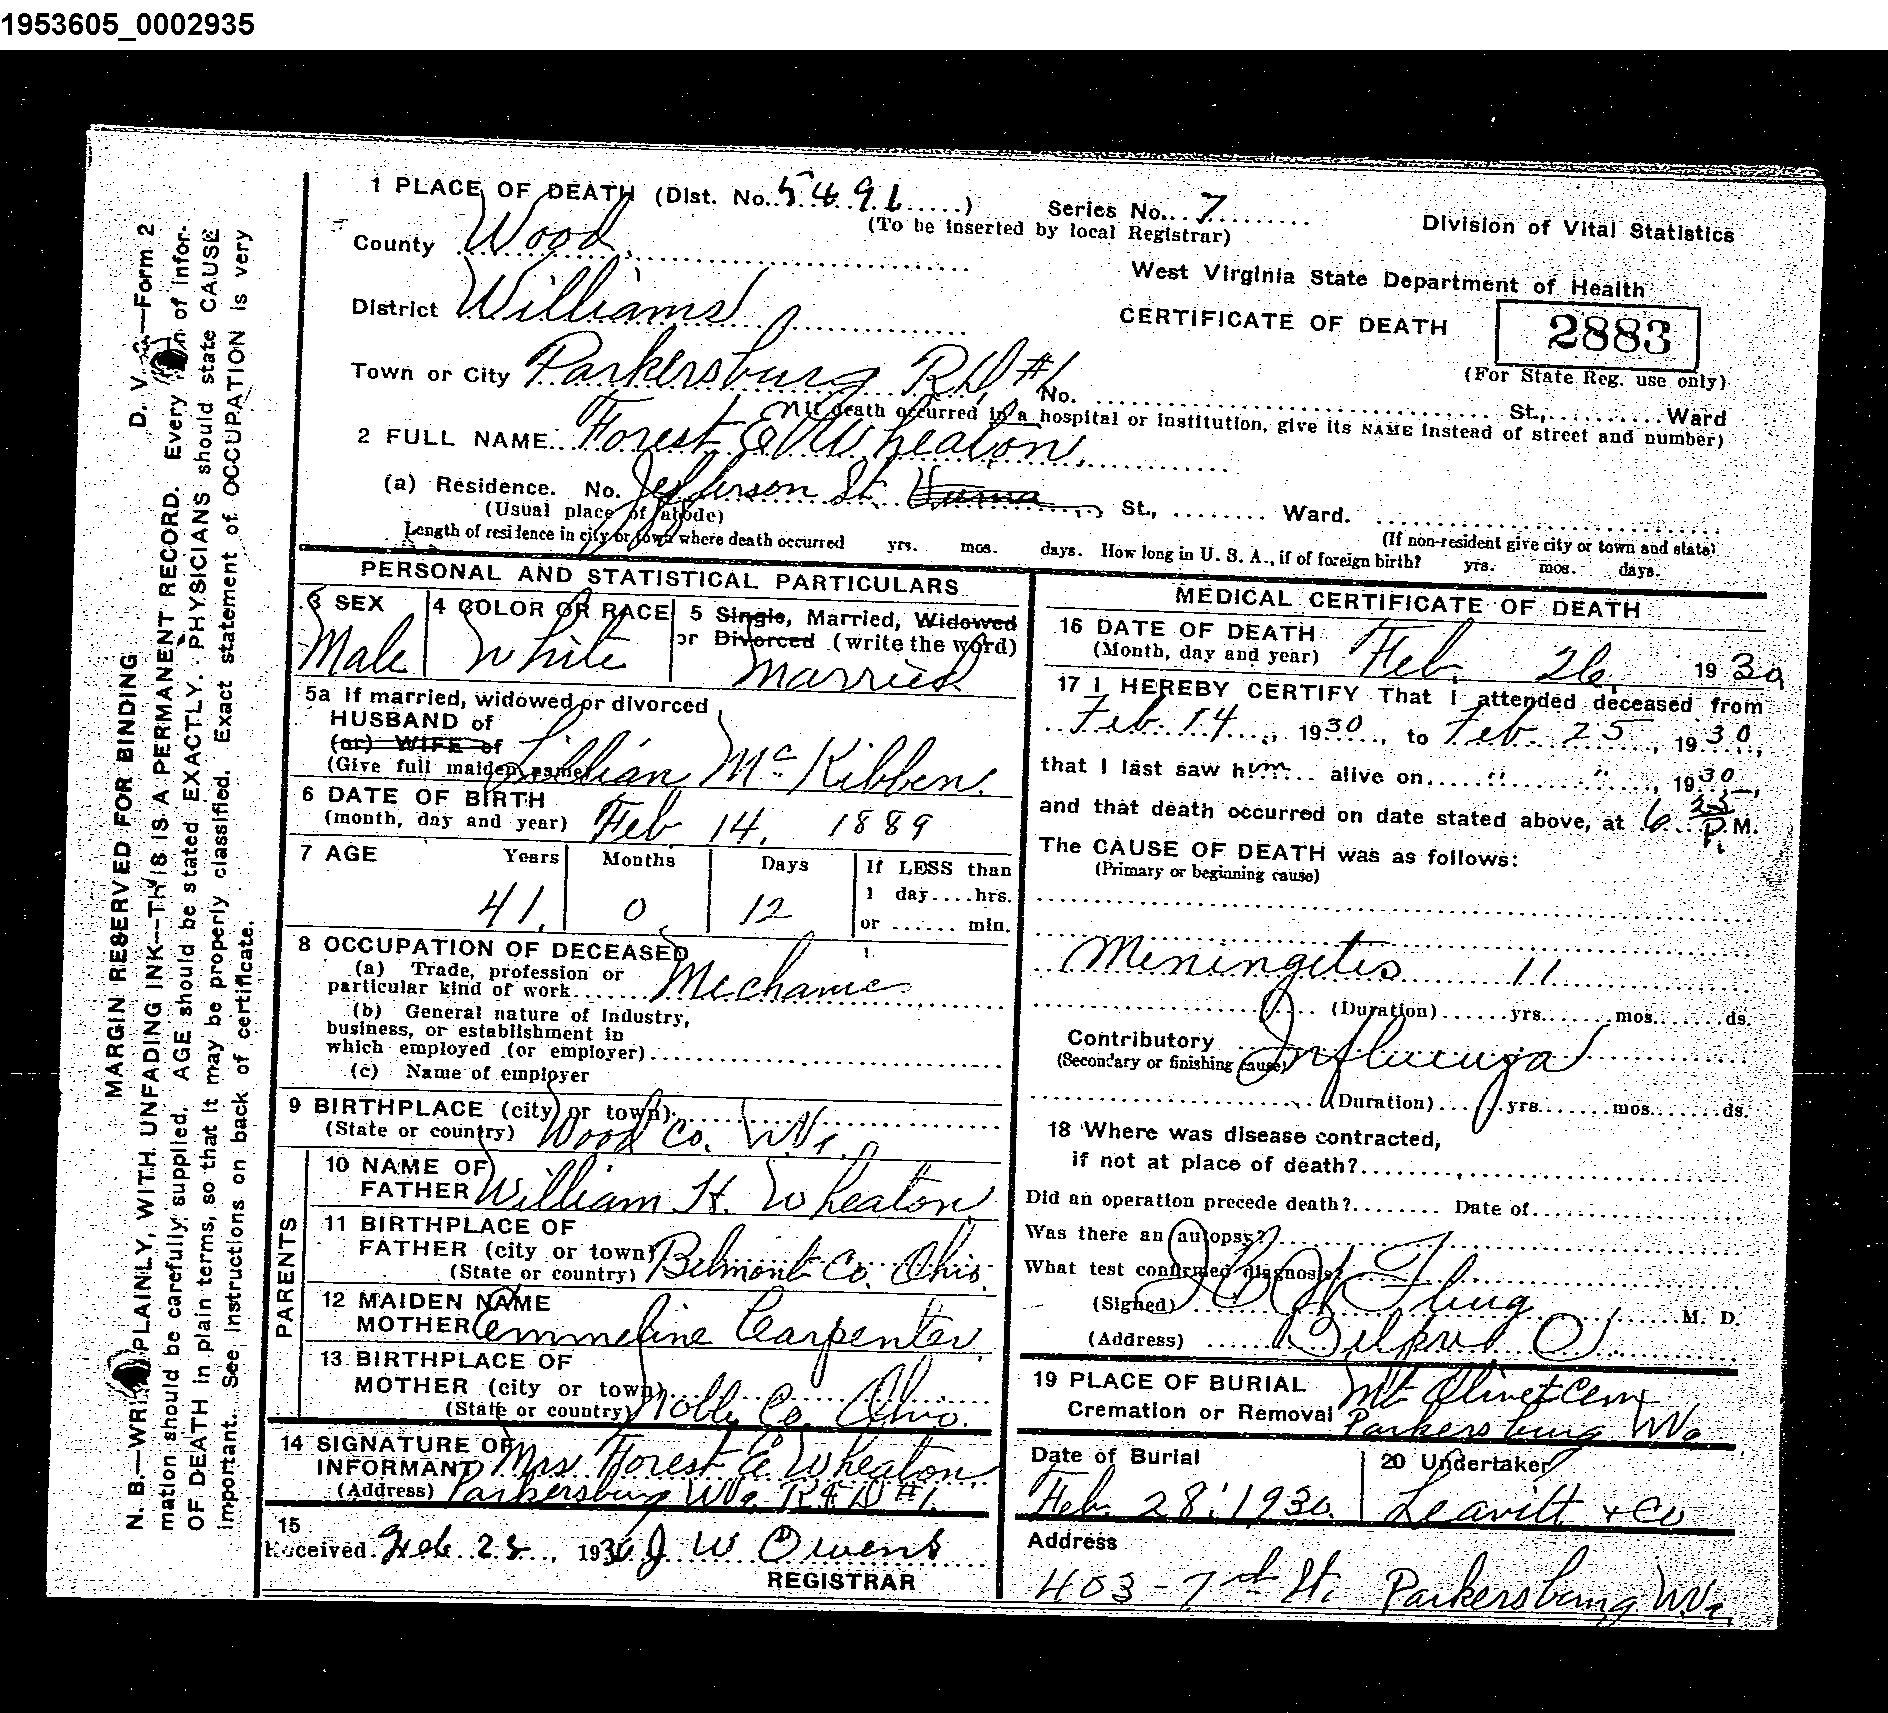 1953605_0002935
1 PLACE OF DEATH (Dist. No. 5491) Series No. 7
(To be inserted by local Registrar)
Division of Vital Statistics
County Wood
West Virginia State Department of Health
District Williams
CERTIFICATE OF DEATH 2883
(For State Reg. use only)
Town or City Parkersburg RD #1 No. St., Ward
(If death occurred in a hospital or institution, give its NAME instead of street and number)
2 FULL NAME Forest E Wheaton
(a) Residence. No. Jefferson St. St., Ward.
(Usual place of abode) (If non-resident give city or town and state)
Length of residence in city or town where death occurred yrs. mos. days. How long in U. S. A., if of foreign birth? yrs. mos. days.
PERSONAL AND STATISTICAL PARTICULARS
3 SEX 4 COLOR OR RACE 5 Single, Married, Widowed
or Divorced (write the word)
Male White Married
5a If married, widowed or divorced
HUSBAND of
(or) WIFE of
(Give full maiden name) Lillian McKibben
6 DATE OF BIRTH
(month, day and year) Feb. 14, 1889
7 AGE Years Months Days If LESS than
1 day....hrs.
41. 0. 12
or ...... min.
8 OCCUPATION OF DECEASED
(a) Trade, profession or
particular kind of work Mechanic
(b) General nature of Industry,
business, or establishment in
which employed (or employer)
(c) Name of employer
9 BIRTHPLACE (city or town)
(State or country) Wood Co. W.Va.
PARENTS
10 NAME OF
FATHER William H. Wheaton
11 BIRTHPLACE OF
FATHER (city or town)
(State or country) Belmont Co. Ohio.
12 MAIDEN NAME
MOTHER Emmeline Carpenter
13 BIRTHPLACE OF
MOTHER (city or town)
(State or country) Noble Co. Ohio.
14 SIGNATURE OF
INFORMANT Mrs Forest E Wheaton
(Address) Parkersburg WVa R#D #1.
15
Received Feb 28, 1930 J W Owens
REGISTRAR
MEDICAL CERTIFICATE OF DEATH
16 DATE OF DEATH
(Month, day and year) Feb. 26, 1930
17 I HEREBY CERTIFY That I attended deceased from
Feb. 14, 1930, to Feb. 25, 1930,
that I last saw him alive on " " , 1930,
and that death occurred on date stated above, at 6 35 P. M.
The CAUSE OF DEATH was as follows:
(Primary or beginning cause)
Meningitis 11
(Duration) yrs. mos. ds.
Contributory
(Secondary or finishing cause) Influenza
(Duration) yrs. mos. ds.
18 Where was disease contracted,
if not at place of death?
Did an operation precede death? Date of
Was there an autopsy?
What test confirmed diagnosis?
(Signed) Fling M. D.
(Address) Belpre O.
19 PLACE OF BURIAL
Cremation or Removal Mt Olivet Cem
Parkersburg WVa
Date of Burial 20 Undertaker
Feb. 28. 1930. Leavitt + Co
Address
403 - 7th St. Parkersburg W.Va.
MARGIN RESERVED FOR BINDING D. V. S.—Form 2
N. B.—WRITE PLAINLY, WITH UNFADING INK—THIS IS A PERMANENT RECORD. Every item of infor-
mation should be carefully supplied. AGE should be stated EXACTLY. PHYSICIANS should state CAUSE
OF DEATH in plain terms, so that it may be properly classified. Exact statement of OCCUPATION is very
important. See instructions on back of certificate.